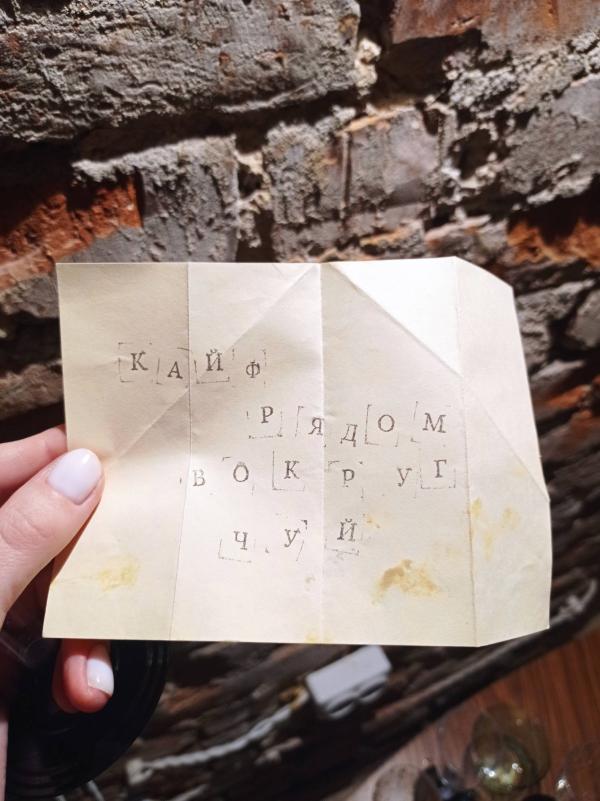 КАЙФ
РЯДОМ
ВОКРУГ
ЧУЙ